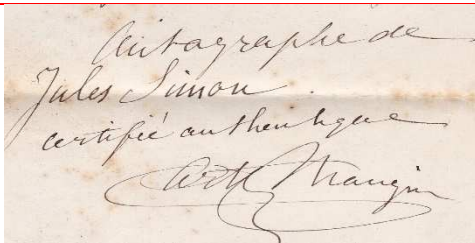 Autographe de
Jules Simon.
certifié authentique
Arth Mangin